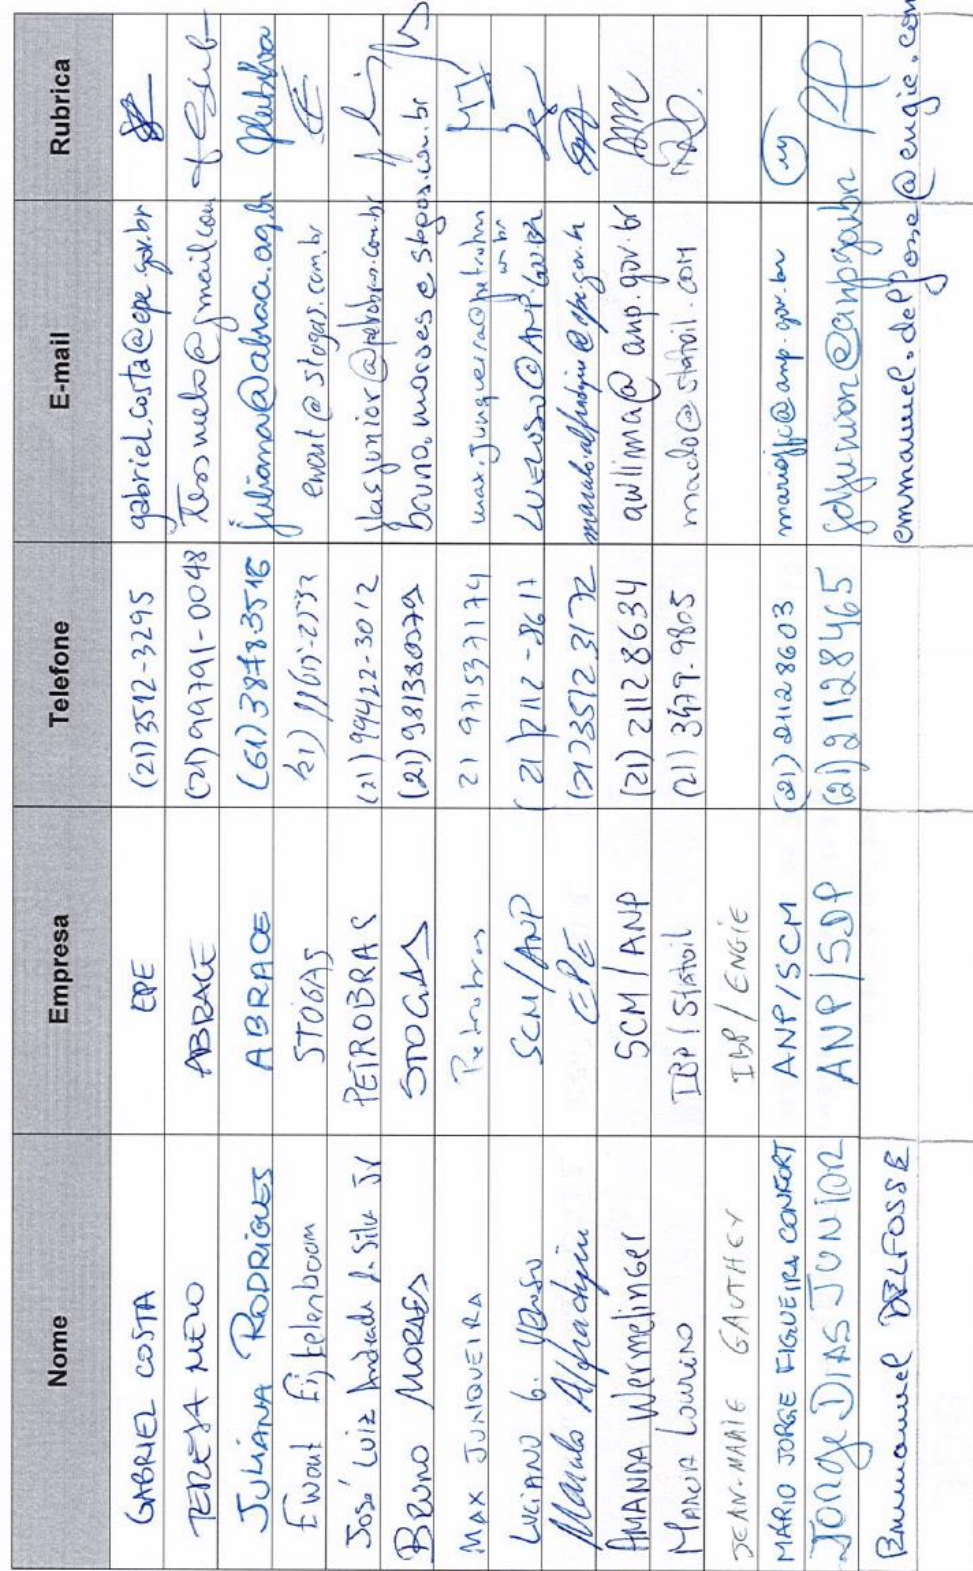 Nome Empresa Telefone E-mail Rubrica
GABRIEL COSTA EPE (21)3512-3295 gabriel.costa@epe.gov.br
TERESA MELO ABRACE (21)99791-0048
JULIANA RODRIGUES ABRACE (61)38783516 juliana@abrace.org.br
Ewout Eijkelenboom STOGAS ewout@stogas.com.br
José Luiz Andrade da Silva Jr PETROBRAS (21)99422-3012 jlasjunior@petrobras.com.br
BRUNO MORAES STOGAS (21)981380279 bruno.moraes@stogas.com.br
MAX JUNQUEIRA Petrobras 21 971537174 max.junqueira@petrobras
com.br
LUCIANO G. VELOSO SCM/ANP (21)2112-8617 LVELOSO@ANP.GOV.BR
Marcelo Alfradique EPE (21)3512 3172 marcelo.alfradique@epe.gov.br
AMANDA Wermelinger SCM/ANP (21) 2112 8634 awllima@anp.gov.br
IBP/Statoil (21) 3479-9805 @statoil.com
JEAN-MARIE GAUTHEY IBP/ENGIE
MÁRIO JORGE FIGUEIRA CONFORT ANP/SCM (21) 2112 8603 mariojfc@anp.gov.br
JORGE DIAS JUNIOR ANP/SDP (21)21128465
Emmanuel DELFOSSE emmanuel.delfosse@engie.com